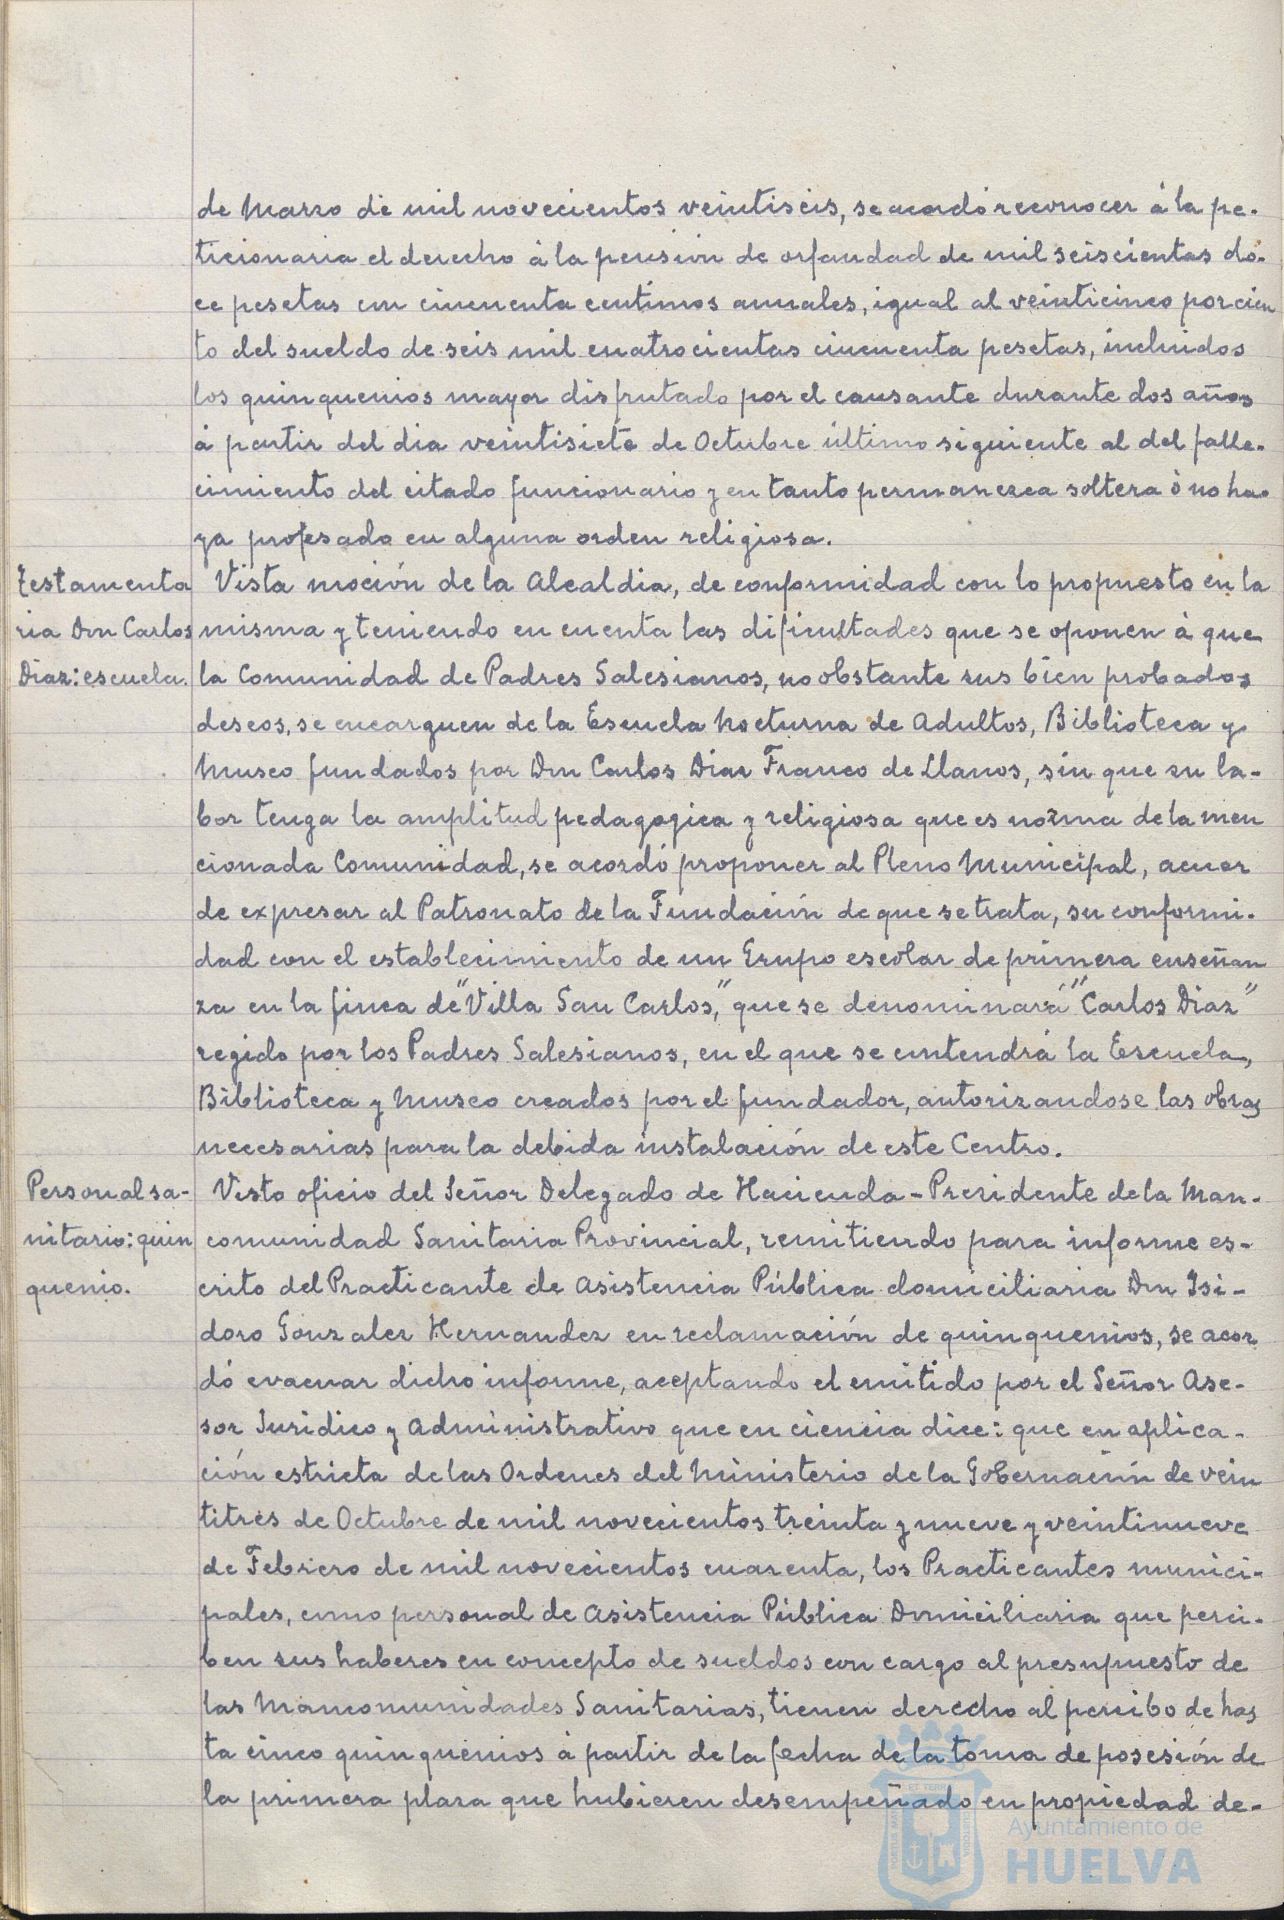 de Marzo de mil novecientos veintiseis, se acordó reconocer á la pe-
ticionaria el derecho á la pensión de orfandad de mil seiscientas do-
ce pesetas con cincuenta centimos anuales, igual al veinticinco por cien
to del sueldo de seis mil cuatrocientas cincuenta pesetas, incluidos
los quinquenios mayor disfrutado por el causante durante dos años
á partir del dia veintisiete de Octubre último siguiente al del falle-
cimiento del citado funcionario y en tanto permanezca soltera ó no ha-
ya profesado en alguna orden religiosa.
Testamenta
ria Don Carlos
Diaz: escuela.
Vista moción de la Alcaldia, de conformidad con lo propuesto en la
misma y teniendo en cuenta las dificultades que se oponen á que
la Comunidad de Padres Salesianos, no obstante sus bien probados
deseos, se encarguen de la Escuela Nocturna de Adultos, Biblioteca y
Museo fundados por Don Carlos Diaz Franco de Llanos, sin que su la-
bor tenga la amplitud pedagogica y religiosa que es norma de la men
cionada Comunidad, se acordó proponer al Pleno Municipal, acuer
de expresar al Patronato de la Fundación de que se trata, su conformi-
dad con el establecimiento de un Grupo escolar de primera enseñan
za en la finca de "Villa San Carlos," que se denominará "Carlos Diaz"
regido por los Padres Salesianos, en el que se contendrá la Escuela,
Biblioteca y Museo creados por el fundador, autorizandose las obras
necesarias para la debida instalación de este Centro.
Personal sa-
nitario: quin
quenio.
Visto oficio del Señor Delegado de Hacienda - Presidente de la Man-
comunidad Sanitaria Provincial, remitiendo para informe es-
crito del Practicante de Asistencia Pública domiciliaria Don Isi-
doro Gonzalez Hernandez en reclamación de quinquenios, se acor
dó evacuar dicho informe, aceptando el emitido por el Señor Ase-
sor Juridico y Administrativo que en ciencia dice: que en aplica-
ción estricta de las Ordenes del Ministerio de la Gobernación de vein
titres de Octubre de mil novecientos treinta y nueve y veintinueve
de Febrero de mil novecientos cuarenta, los Practicantes munici-
pales, como personal de Asistencia Pública Domiciliaria que perci-
ben sus haberes en concepto de sueldos con cargo al presupuesto de
las Mancomunidades Sanitarias, tienen derecho al percibo de has
ta cinco quinquenios á partir de la fecha de la toma de posesión de
la primera plaza que hubieren desempeñado en propiedad de-
Ayuntamiento de
HUELVA